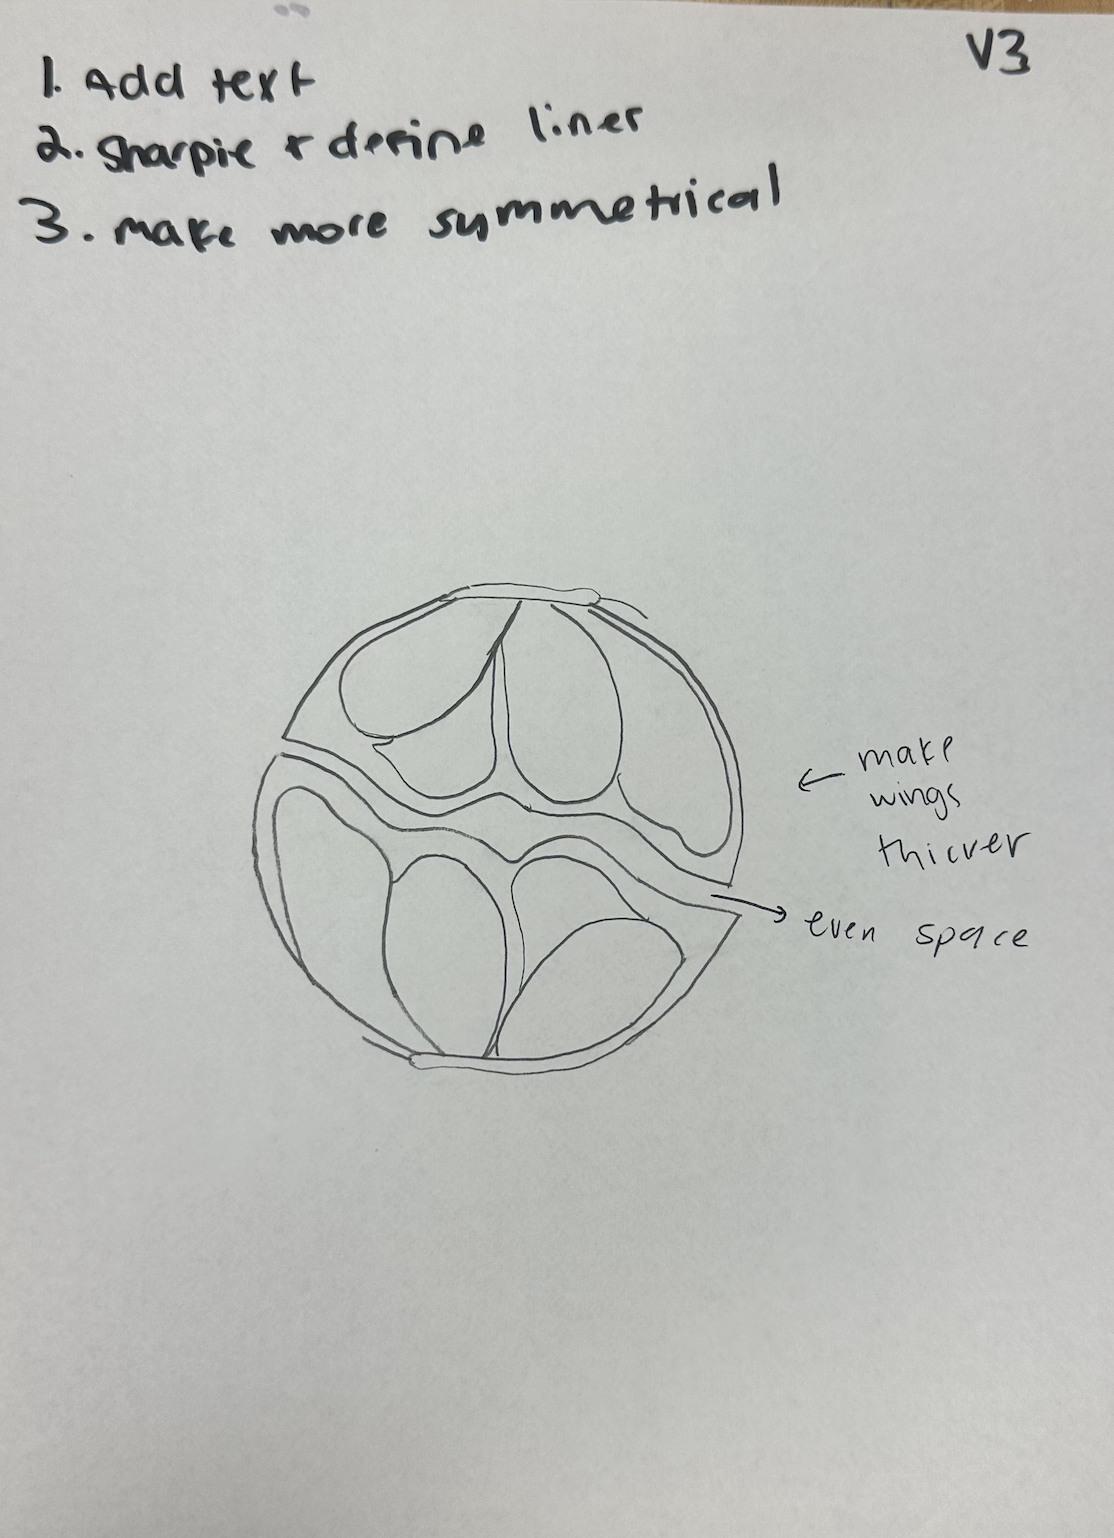 V3
1. Add text
2. Sharpie + define liner
3. make more symmetrical
← make
wings
thicker
→ even space